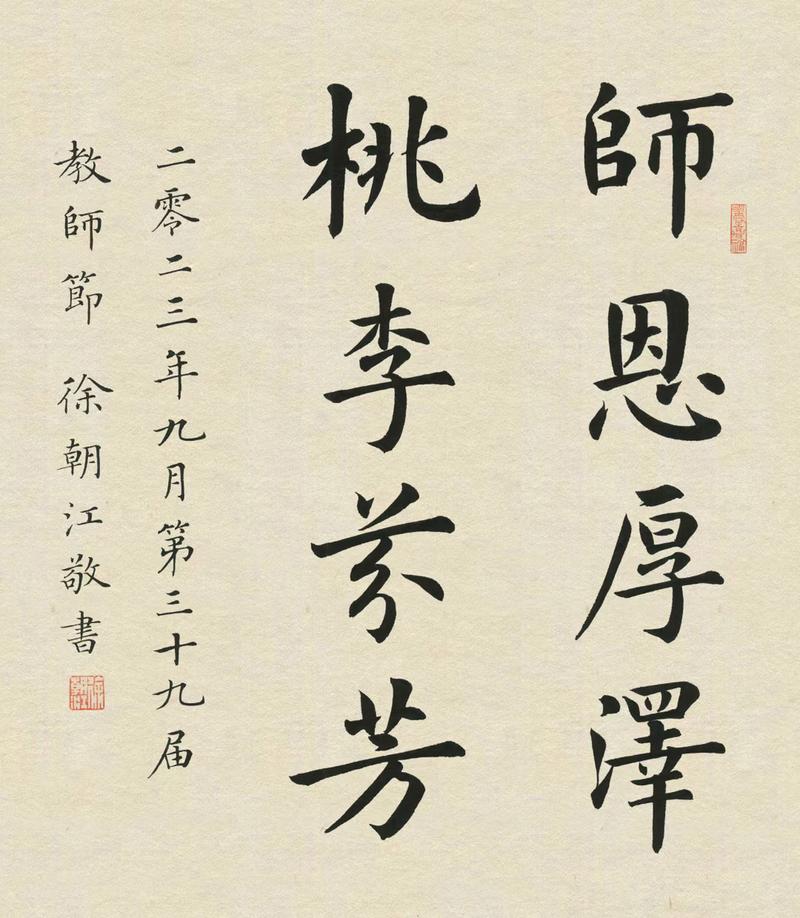 師恩厚澤
桃李芬芳
二零二三年九月第三十九届
教師節 徐朝江敬書